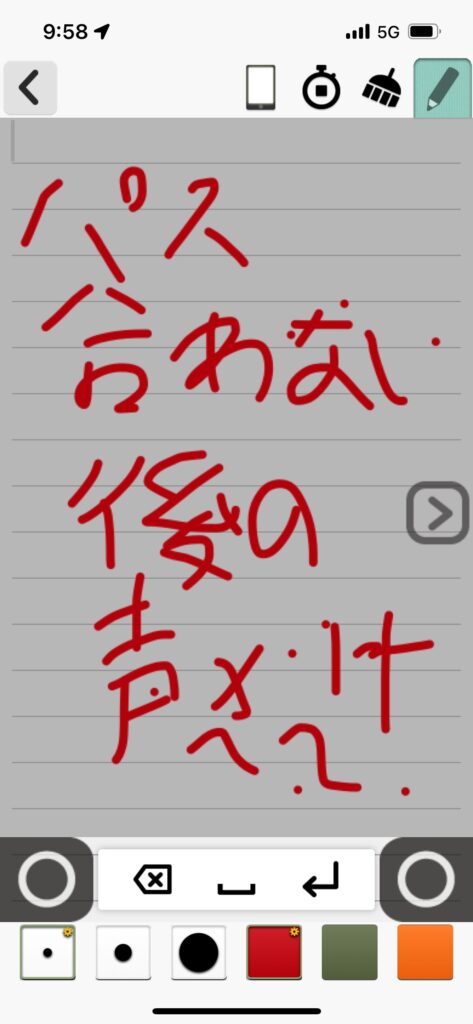 9:58 5G
パス
合わない
後の
声 け